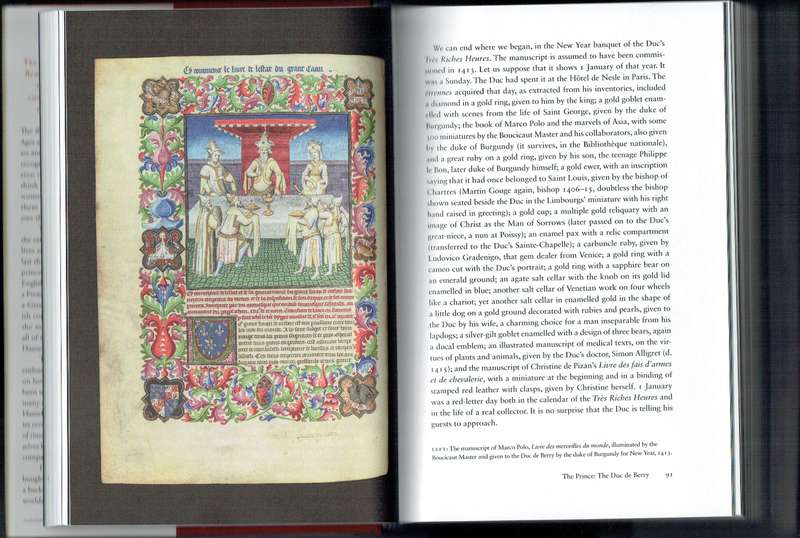 Cy commence le livre de lestat du grant Caan
We can end where we began, in the New Year banquet of the Duc's
Très Riches Heures. The manuscript is assumed to have been commis-
sioned in 1413. Let us suppose that it shows 1 January of that year. It
was a Sunday. The Duc had spent it at the Hôtel de Nesle in Paris. The
étrennes acquired that day, as extracted from his inventories, included
a diamond in a gold ring, given to him by the king; a gold goblet enam-
elled with scenes from the life of Saint George, given by the duke of
Burgundy; the book of Marco Polo and the marvels of Asia, with some
300 miniatures by the Boucicaut Master and his collaborators, also given
by the duke of Burgundy (it survives, in the Bibliothèque nationale),
and a great ruby on a gold ring, given by his son, the teenage Philippe
le Bon, later duke of Burgundy himself; a gold ewer, with an inscription
saying that it had once belonged to Saint Louis, given by the bishop of
Chartres (Martin Gouge again, bishop 1406–15, doubtless the bishop
shown seated beside the Duc in the Limbourgs' miniature with his right
hand raised in greeting); a gold cup; a multiple gold reliquary with an
image of Christ as the Man of Sorrows (later passed on to the Duc's
great-niece, a nun at Poissy); an enamel pax with a relic compartment
(transferred to the Duc's Sainte-Chapelle); a carbuncle ruby, given by
Ludovico Gradenigo, that gem dealer from Venice; a gold ring with a
cameo cut with the Duc's portrait; a gold ring with a sapphire bear on
an emerald ground; an agate salt cellar with the knob on its gold lid
enamelled in blue; another salt cellar of Venetian work on four wheels
like a chariot; yet another salt cellar in enamelled gold in the shape of
a little dog on a gold ground decorated with rubies and pearls, given to
the Duc by his wife, a charming choice for a man inseparable from his
lapdogs; a silver-gilt goblet enamelled with a design of three bears, again
a ducal emblem; an illustrated manuscript of medical texts, on the vir-
tues of plants and animals, given by the Duc's doctor, Simon Alligret (d.
1415); and the manuscript of Christine de Pizan's Livre des fais d'armes
et de chevalerie, with a miniature at the beginning and in a binding of
stamped red leather with clasps, given by Christine herself. 1 January
was a red-letter day both in the calendar of the Très Riches Heures and
in the life of a real collector. It is no surprise that the Duc is telling his
guests to approach.
LEFT: The manuscript of Marco Polo, Livre des merveilles du monde, illuminated by the
Boucicaut Master and given to the Duc de Berry by the duke of Burgundy for New Year, 1413.
The Prince: The Duc de Berry 91